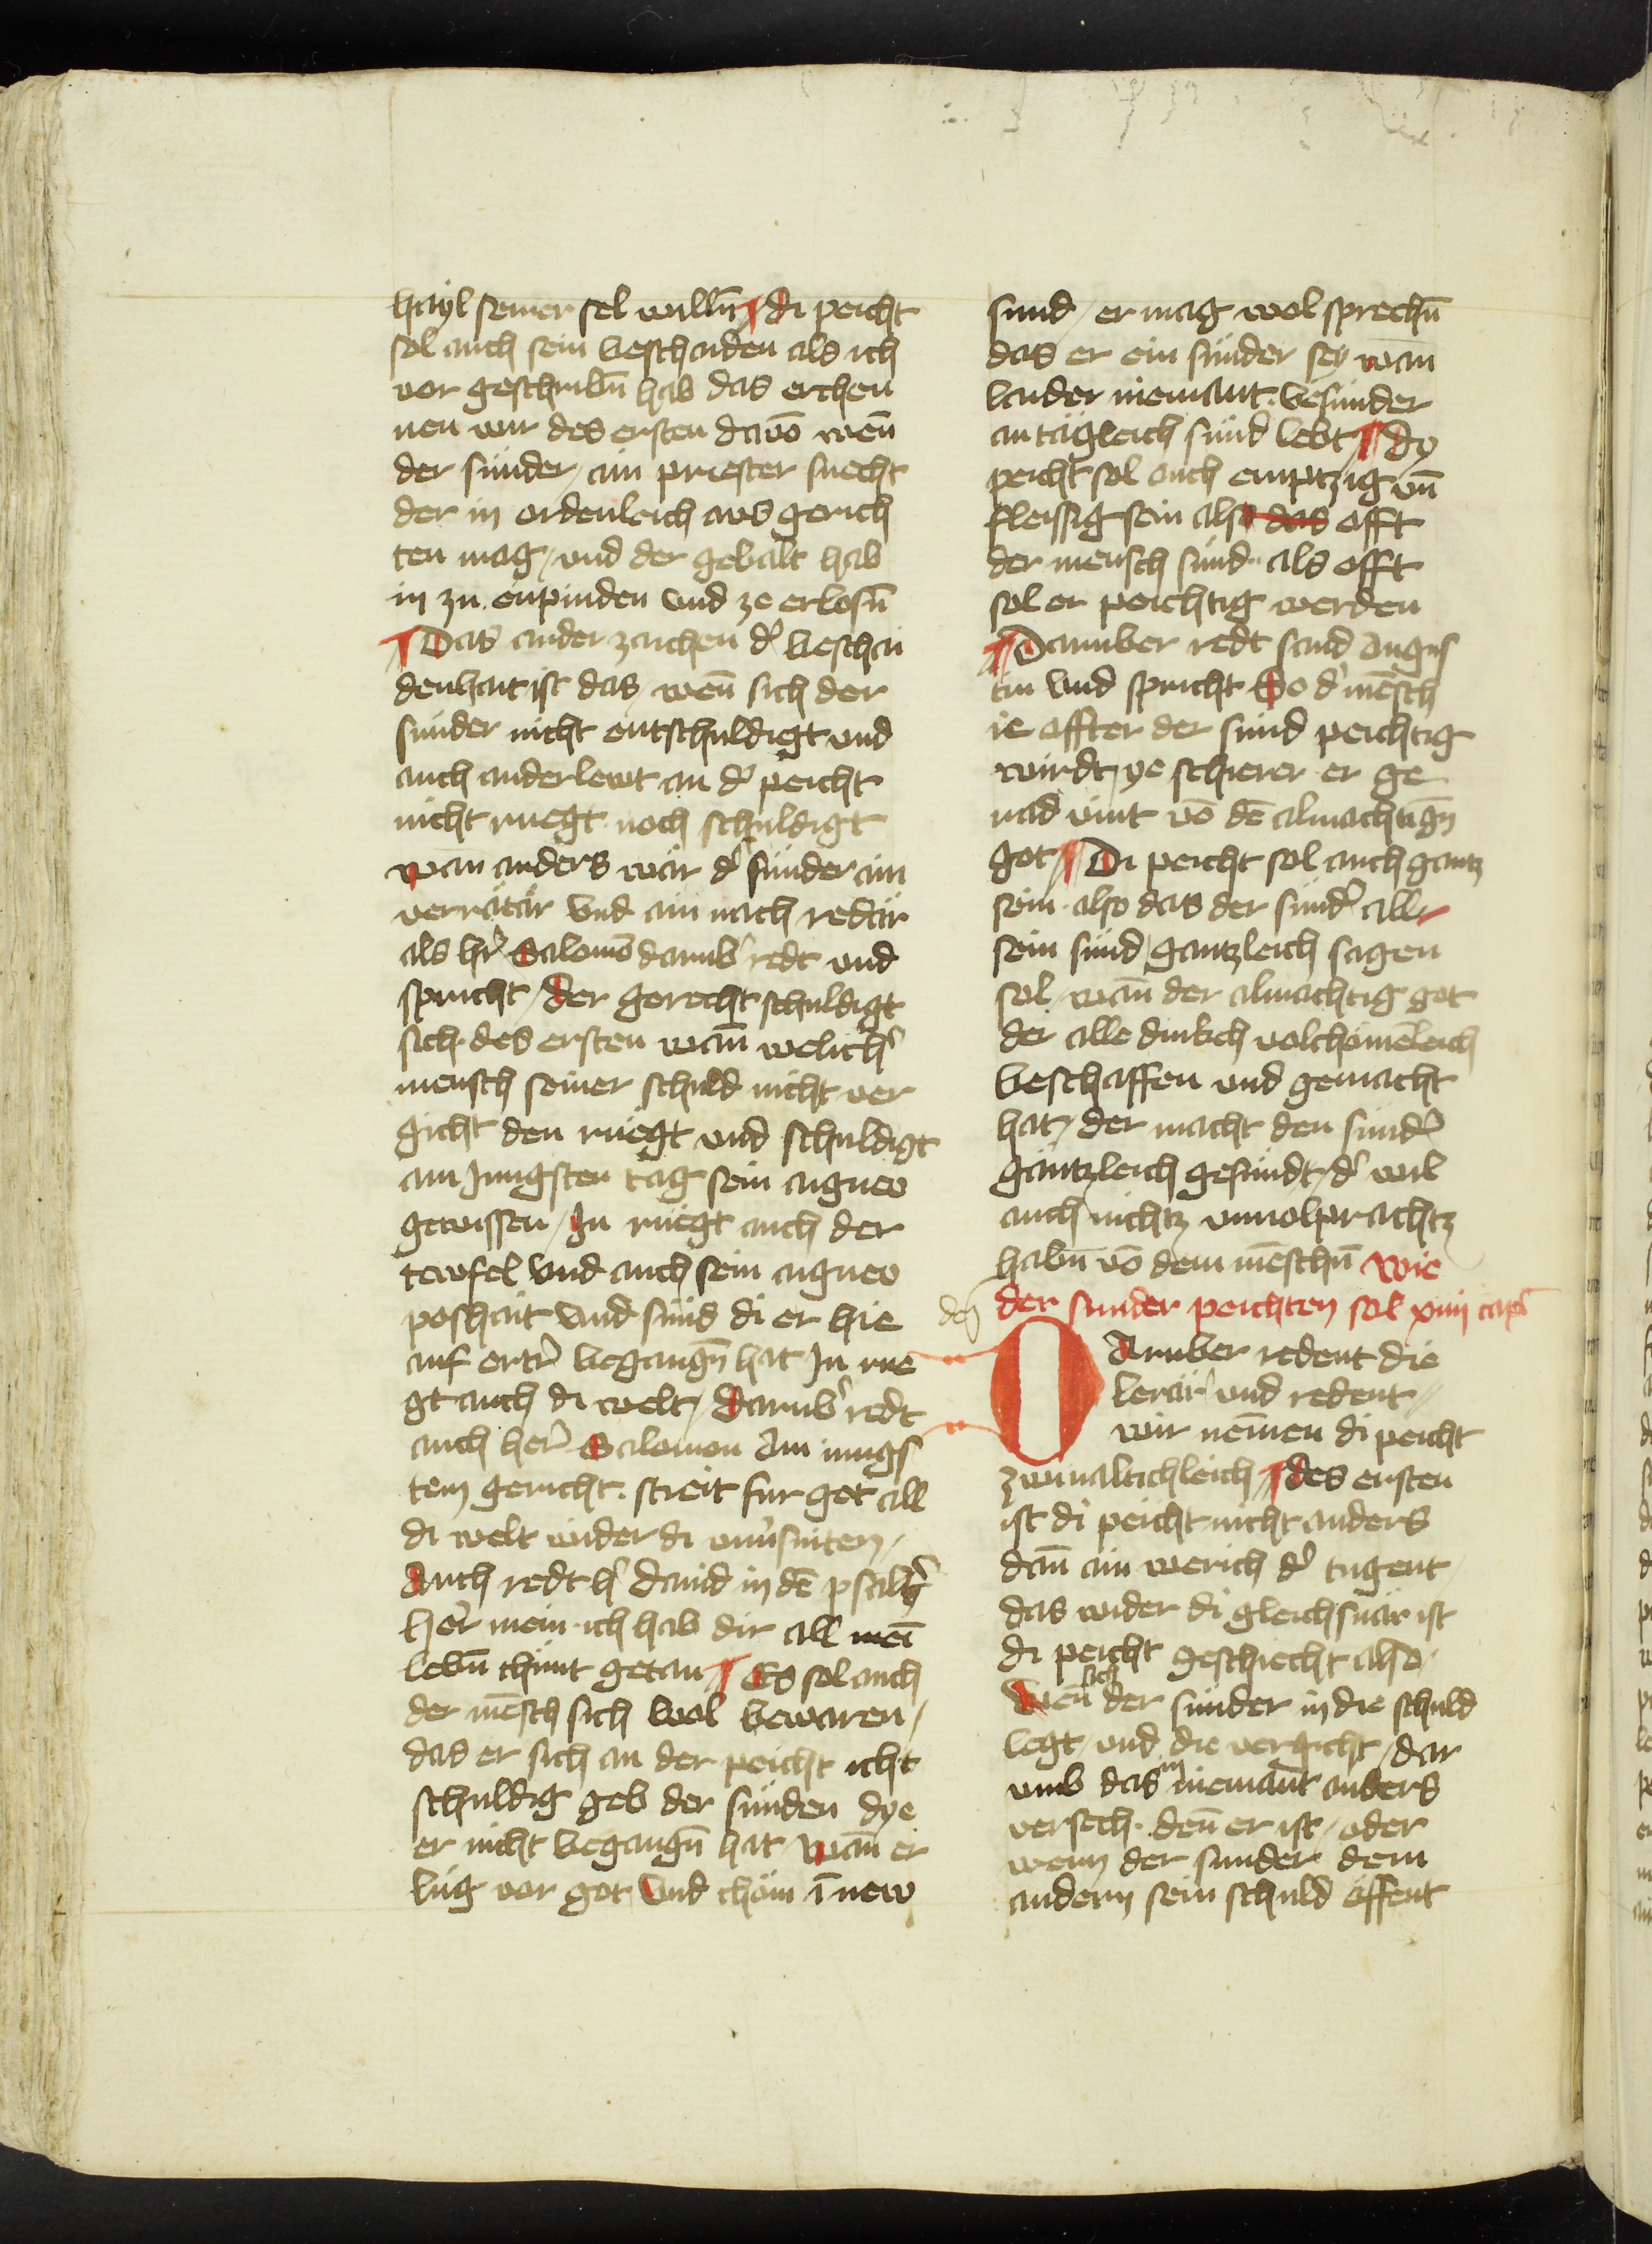 hayl seiner sel willn̄ di peicht
sol auch sein beschaiden als ich
vor geschribn̄ hab das erchen
nen wir des ersten dauō wen̄
der sünder / ain priester suecht
der in ordenleich aus gerich
ten mag / vnd der gebalt hab
in zu enpinden vnd ze erlosn̄
Das ander zaichen d' beschai
denhait ist das / wen̄ sich der
sunder nicht entschuldigt vnd
auch ander lewt an d' peicht
nicht ruegt noch schuldigt
wan anders wär d' sünder ain
verrätär vnd ain nach redär
als h'r Salomō darub' redt vnd
spricht / der gerecht schuldigt
sich des ersten wan̄ welich'
mensch seiner schuld nicht ver
gicht den rüegt vnd schuldigt
am Jungsten tag sein aignew
gewissen / In rüegt auch der
tewfel vnd auch sein aignew
poshait vnd sünd di er hie
auf ertr' begangn̄ hat In rue
gt auch di welt / darub' redt
auch her' Salomon Am iungs
tem gericht streit fur got all
di welt wider di vnu'sniten /
Auch redt h' dauid in dē psalt'
her' mein ich hab dir all mei
lebn̄ chünt getan Es sol auch
der mēsch sich wol bewaren /
das er sich an der peicht icht
schuldig geb der sünden dye
er nicht begangn̄ hat wan̄ er
lüg vor got vnd chöm ī new
sund / er mag wol sprechn̄
das er ein sünder sey wan
laider niemant besunder
an tägleich sünd lebt dy
peicht sol auch emptzig vn̄
fleissig sein also das offt
der mensch sünd als offt
sol er peichtig werden
Daruber redt sand Augus
tin vnd spricht So d' mēsch
ie offter der sund peichtig
wirdt / ye schierer er ge
nad vint vō dē almachtign̄
got Di peicht sol auch gantz
sein also das der sünd' all
sein sünd gantzleich sagen
sol / wan̄ der almachtig got
der alle dinkch volchömēleich
beschaffen vnd gemacht
hat / der macht den sünd'
gäntzleich gesundt / d' wil
auch nichtz vnuolprachtz
habn̄ vō dem mēschn̄ Wie
der sunder peichten sol xiiij cap'
Daruber redent die
lerär vnd redent
wir nem̄en di peicht
zwiualtichleich des ersten
ist di peicht nicht anders
dan̄ ain werich d' tugent
das wider di gleichsnär ist
di peicht geschiecht also
Wen̄ sich der sünder in die schuld
legt / vnd die vergicht / dar
vmb das in niemant anders
versech den̄ er ist / oder
wenn der sunder dem
andern sein schuld öffent